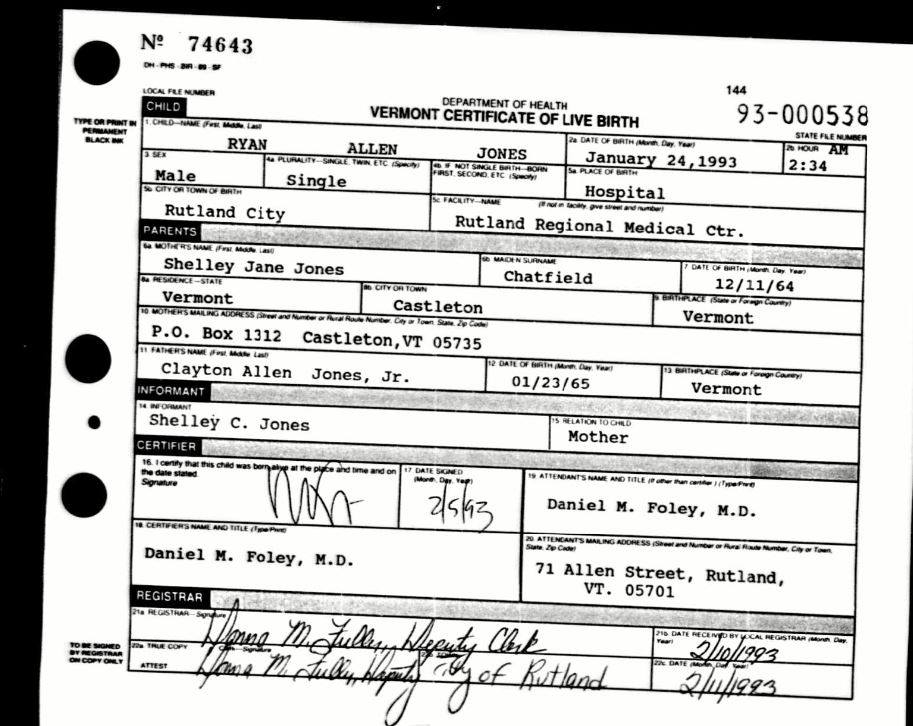 Nº 74643
DH - PHS - BIR - 89 - SF
LOCAL FILE NUMBER
144
DEPARTMENT OF HEALTH
VERMONT CERTIFICATE OF LIVE BIRTH
93-000538
STATE FILE NUMBER
TYPE OR PRINT IN
PERMANENT
BLACK INK
CHILD
1. CHILD—NAME (First, Middle, Last)
RYAN ALLEN JONES
2a. DATE OF BIRTH (Month, Day, Year)
January 24,1993
2b. HOUR AM
2:34
3. SEX
Male
4a. PLURALITY—SINGLE, TWIN, ETC. (Specify)
Single
4b. IF NOT SINGLE BIRTH—BORN
FIRST, SECOND, ETC. (Specify)
5a. PLACE OF BIRTH
Hospital
5b. CITY OR TOWN OF BIRTH
Rutland City
5c. FACILITY—NAME (If not in facility, give street and number)
Rutland Regional Medical Ctr.
PARENTS
6a. MOTHER'S NAME (First, Middle, Last)
Shelley Jane Jones
6b. MAIDEN SURNAME
Chatfield
7. DATE OF BIRTH (Month, Day, Year)
12/11/64
8a. RESIDENCE—STATE
Vermont
8b. CITY OR TOWN
Castleton
9. BIRTHPLACE (State or Foreign Country)
Vermont
10. MOTHER'S MAILING ADDRESS (Street and Number or Rural Route Number, City or Town, State, Zip Code)
P.O. Box 1312 Castleton,VT 05735
11. FATHER'S NAME (First, Middle, Last)
Clayton Allen Jones, Jr.
12. DATE OF BIRTH (Month, Day, Year)
01/23/65
13. BIRTHPLACE (State or Foreign Country)
Vermont
INFORMANT
14. INFORMANT
Shelley C. Jones
15. RELATION TO CHILD
Mother
CERTIFIER
16. I certify that this child was born alive at the place and time and on
the date stated.
Signature
17. DATE SIGNED
(Month, Day, Year)
2/5/93
19. ATTENDANT'S NAME AND TITLE (If other than certifier) (Type/Print)
Daniel M. Foley, M.D.
18. CERTIFIER'S NAME AND TITLE (Type/Print)
Daniel M. Foley, M.D.
20. ATTENDANT'S MAILING ADDRESS (Street and Number or Rural Route Number, City or Town,
State, Zip Code)
71 Allen Street, Rutland,
VT. 05701
REGISTRAR
21a. REGISTRAR—Signature
Donna M. Fully, Deputy Clerk
21b. DATE RECEIVED BY LOCAL REGISTRAR (Month, Day,
Year)
2/10/1993
TO BE SIGNED
BY REGISTRAR
ON COPY ONLY
22a. TRUE COPY
Signature
ATTEST
Donna M. Fully, Deputy City of Rutland
22c. DATE (Month, Day, Year)
2/11/1993